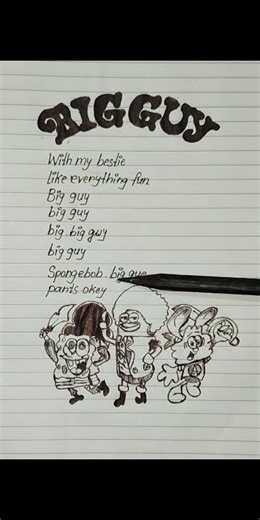 BIG GUY
With my bestie
like everything fun
Big guy
big guy
big big guy
big guy
Spongebob big gue
pants okey